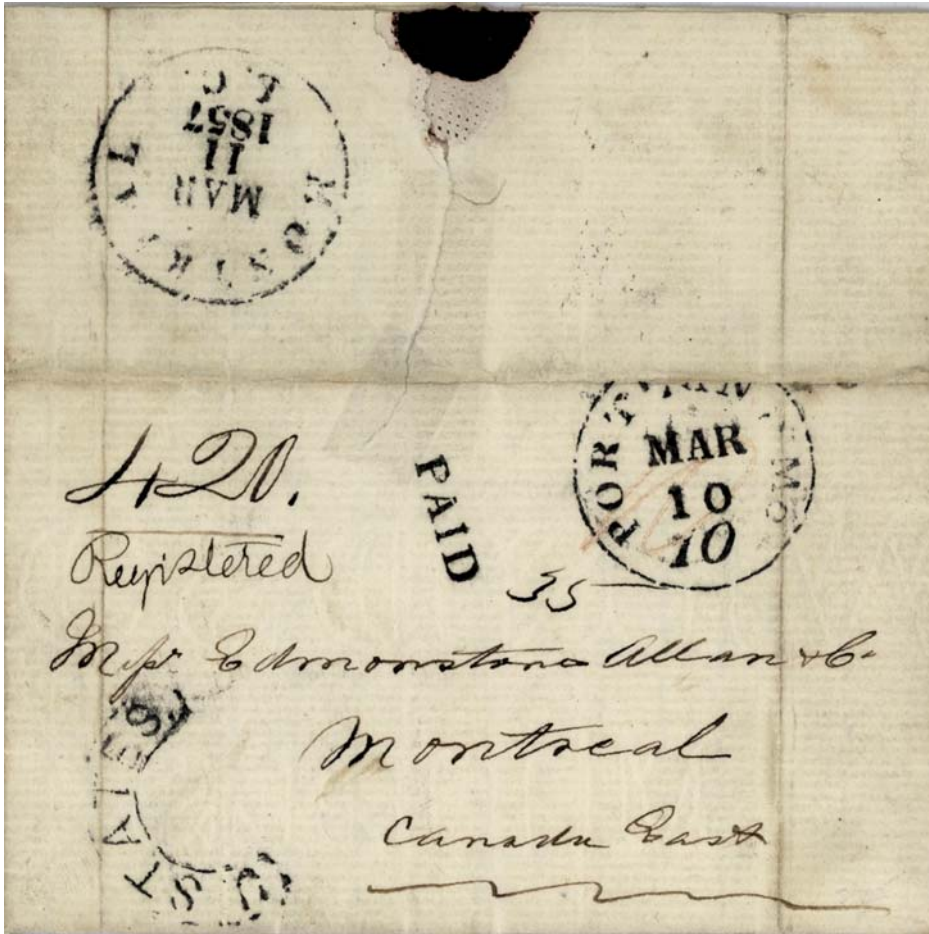 MONTREAL
MAR
11
1857
L C
PORTLAND
MAR
10
10
420.
PAID
Registered
35
Messrs Edmonstone Allan & Co
Montreal
STATES
Canada East